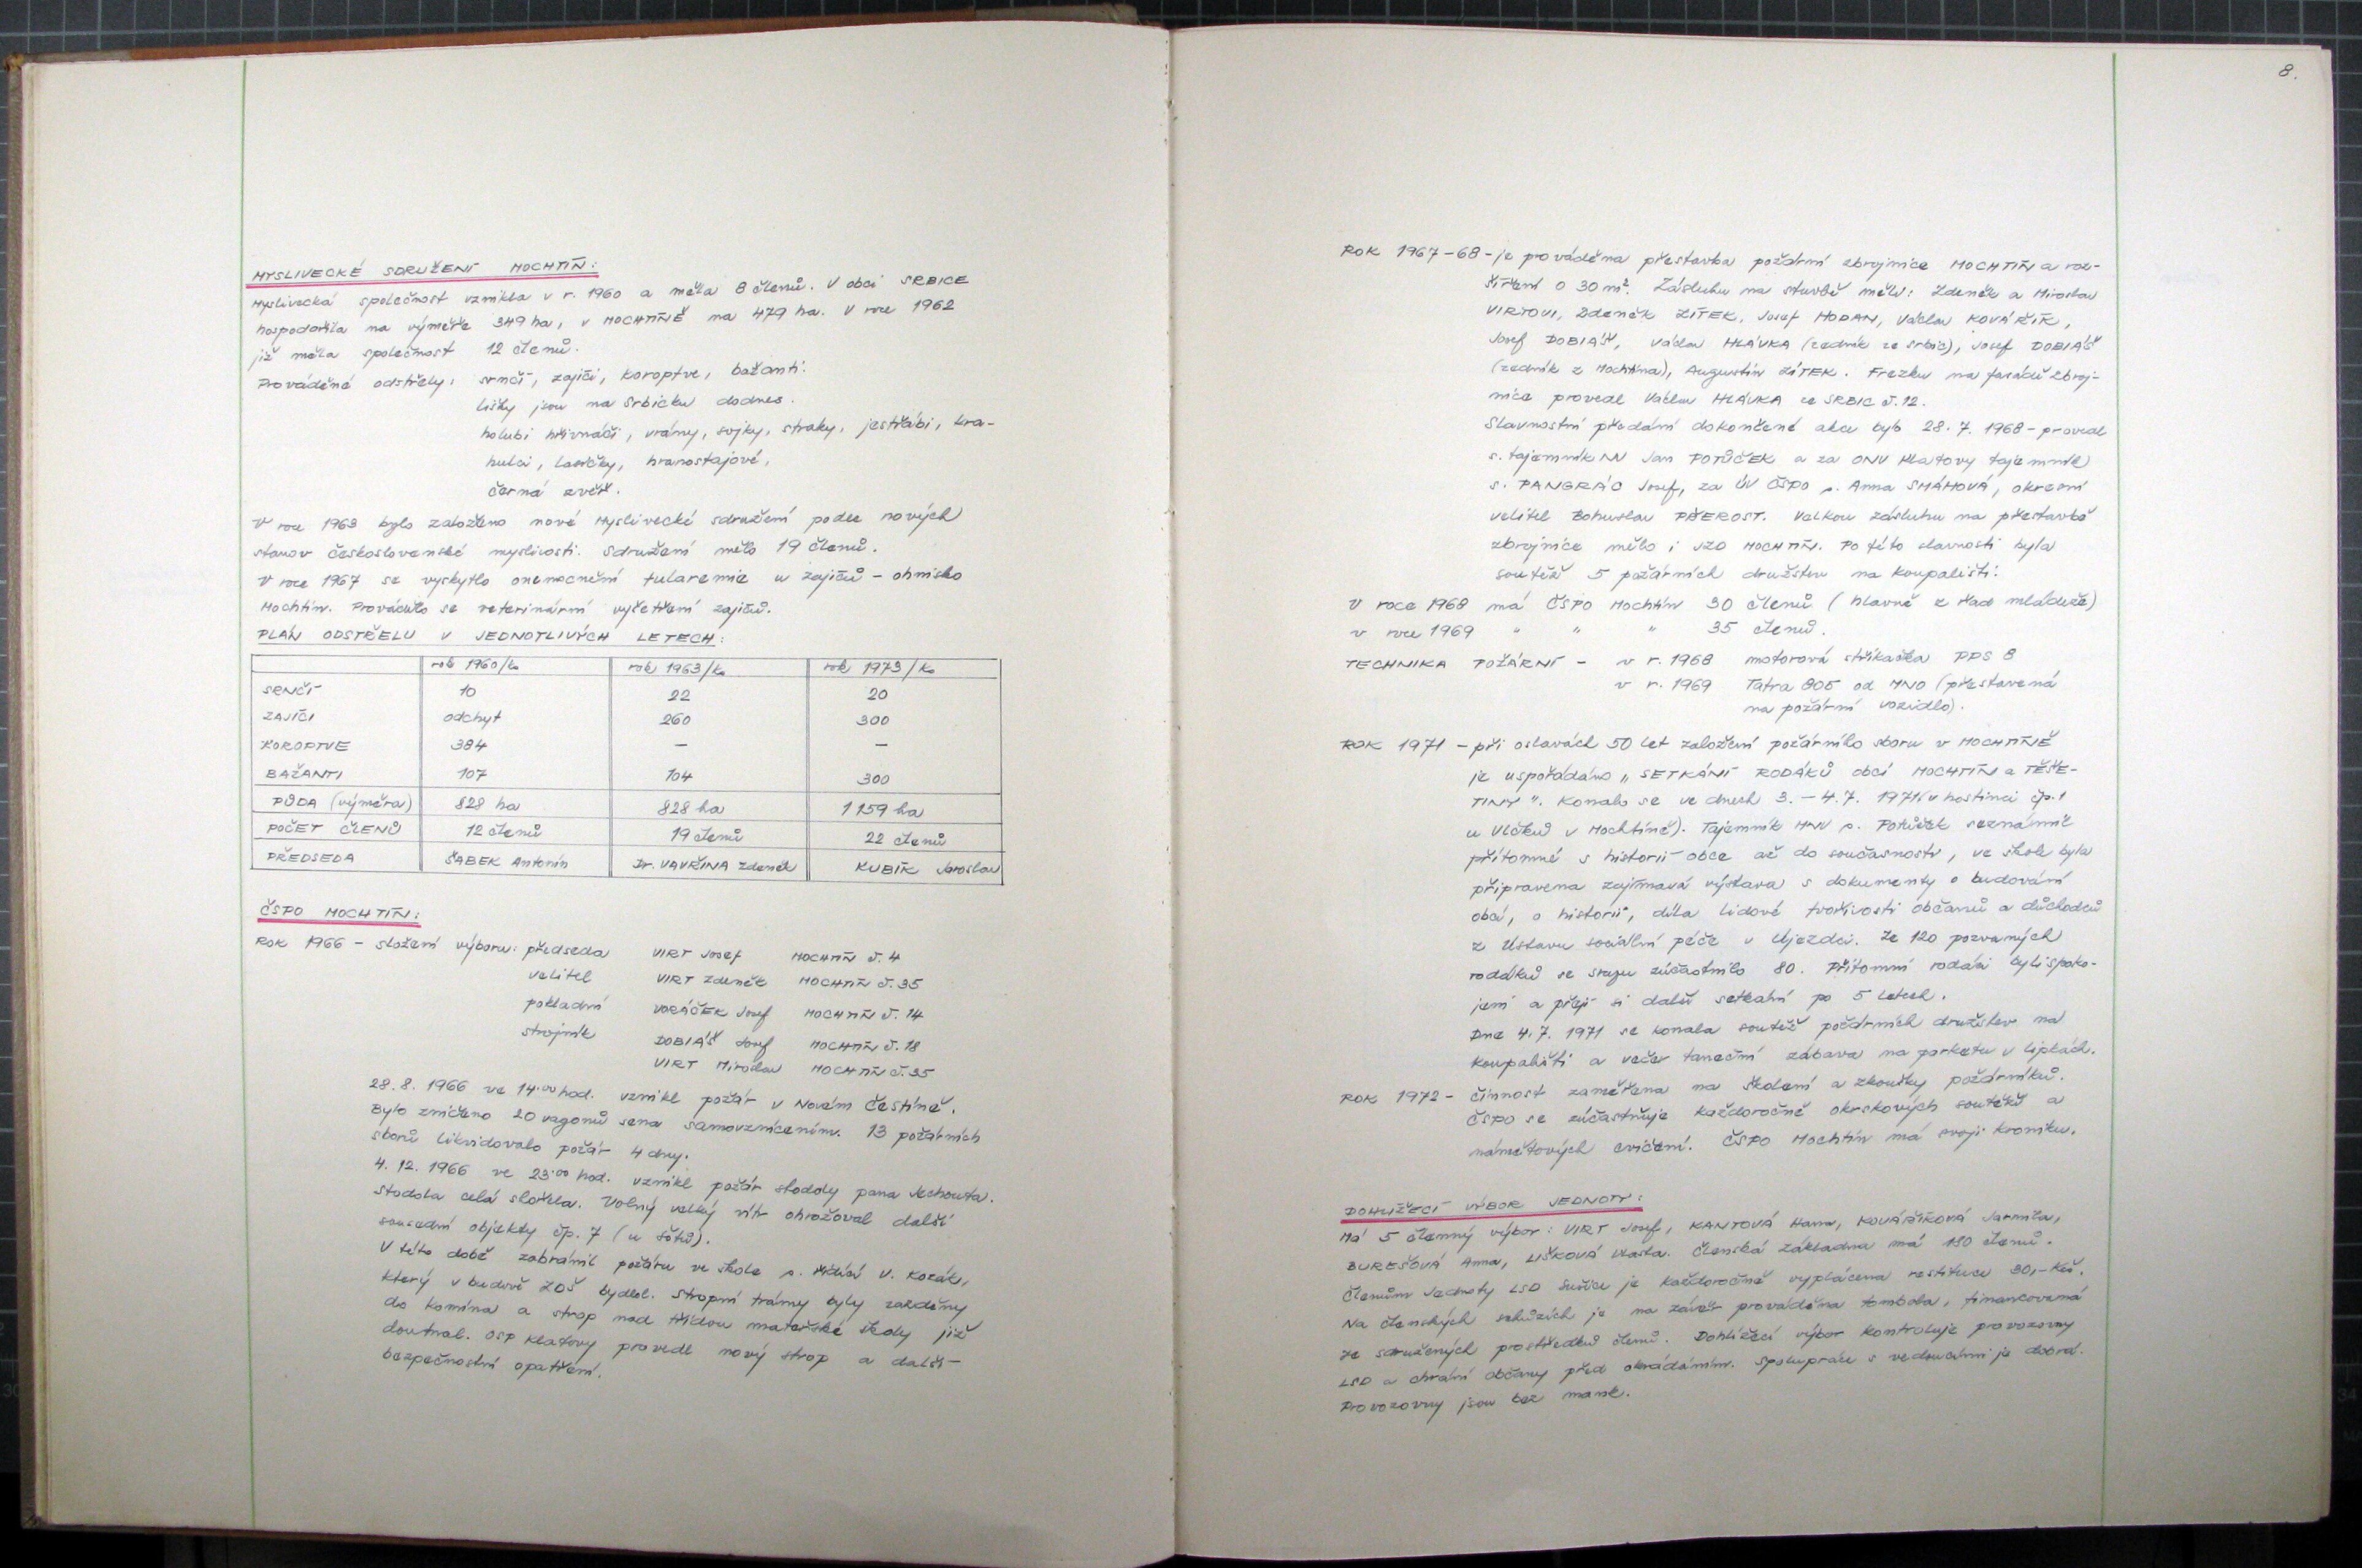 MYSLIVECKÉ SDRUŽENÍ MOCHTÍN:
Myslivecká společnost vznikla v r. 1960 a měla 8 členů. V obci SRBICE
hospodařila na výměře 349 ha, v MOCHTÍNĚ na 479 ha. V roce 1962
již měla společnost 12 členů.
Prováděné odstřely: srnčí, zajíci, koroptve, bažanti.
lišky jsou na Srbicku dodnes.
holubi hřivnáči, vrány, sojky, straky, jestřábi, kra-
hulci, lasičky, hranostajové,
černá zvěř.
V roce 1963 bylo založeno nové Myslivecké sdružení podle nových
stanov československé myslivosti. Sdružení mělo 19 členů.
V roce 1967 se vyskytlo onemocnění tularemie u zajíců - ohnisko
Mochtín. Provádělo se veterinární vyšetření zajíců.
PLÁN ODSTŘELU V JEDNOTLIVÝCH LETECH:
rok 1960/ks rok 1963/ks rok 1973/ks
SRNČÍ 10 22 20
ZAJÍCI odchyt 260 300
KOROPTVE 384 — —
BAŽANTI 107 104 300
PŮDA (výměra) 828 ha 828 ha 1159 ha
POČET ČLENŮ 12 členů 19 členů 22 členů
PŘEDSEDA ŠABEK Antonín Dr. VAVŘINA Zdeněk KUBÍK Jaroslav
ČSPO MOCHTÍN:
ROK 1966 - složení výboru: předseda VIRT Josef MOCHTÍN č. 4
velitel VIRT Zdeněk MOCHTÍN č. 35
pokladní VORÁČEK Josef MOCHTÍN č. 14
strojník DOBIÁŠ Josef MOCHTÍN č. 18
VIRT Miroslav MOCHTÍN č. 35
28. 8. 1966 ve 14.00 hod. vznikl požár v Novém Čestíně.
Bylo zničeno 20 vagonů sena samovznícením. 13 požárních
sborů likvidovalo požár 4 dny.
4. 12. 1966 ve 23.00 hod. vznikl požár stodoly pana Jechouta.
Stodola celá shořela. Volný velký vítr ohrožoval další
sousední objekty čp. 7 (u Šótů).
V této době zabránil požáru ve škole s. řídící V. Kozák,
který v budově ZDŠ bydlel. Stropní trámy byly zazděny
do komína a strop nad třídou mateřské školy již
doutnal. OSP Klatovy provedl nový strop a další
bezpečnostní opatření.
8.
ROK 1967-68 - je prováděna přestavba požární zbrojnice MOCHTÍN a roz-
šíření o 30 m². Zásluhu na stavbě měli: Zdeněk a Miroslav
VIRTOVI, Zdeněk ZÍTEK, Josef HODAN, Václav KOVÁŘÍK,
Josef DOBIÁŠ, Václav HLÁVKA (zedník ze Srbic), Josef DOBIÁŠ
(zedník z Mochtína), Augustin ZÍTEK. Frezku na fasádě zbroj-
nice provedl Václav HLÁVKA ze SRBIC č. 12.
Slavnostní předání dokončené akce bylo 28. 7. 1968 - provedl
s. tajemník NV Jan POTŮČEK a za ONV Klatovy tajemník
s. PANGRÁC Josef, za ÚV ČSPO s. Anna SMÁHOVÁ, okresní
velitel Bohuslav PŘEROST. Velkou zásluhu na přestavbě
zbrojnice mělo i JZD MOCHTÍN. Po této slavnosti byla
soutěž 5 požárních družstev na koupališti.
V roce 1968 má ČSPO Mochtín 30 členů (hlavně z řad mládeže)
v roce 1969 " " " 35 členů.
TECHNIKA POŽÁRNÍ - v r. 1968 motorová stříkačka PPS 8
v r. 1969 Tatra 805 od MNO (přestavená
na požární vozidlo).
ROK 1971 - při oslavách 50 let založení požárního sboru v MOCHTÍNĚ
je uspořádáno „SETKÁNÍ RODÁKŮ obcí MOCHTÍN a TĚŠE-
TINY". Konalo se ve dnech 3. - 4. 7. 1971 (v hostinci čp. 1
u Vlčků v Mochtíně). Tajemník MNV s. Potůček seznámil
přítomné s historií obce až do současnosti, ve škole byla
připravena zajímavá výstava s dokumenty o budování
obcí, o historii, díla lidové tvořivosti občanů a důchodců
z Ústavu sociální péče v Újezdci. Ze 120 pozvaných
rodáků se srazu zúčastnilo 80. Přítomní rodáci byli spoko-
jeni a přejí si další setkání po 5 letech.
Dne 4. 7. 1971 se konala soutěž požárních družstev na
koupališti a večer taneční zábava na parketu v lipkách.
ROK 1972 - činnost zaměřena na školení a zkoušky požárníků.
ČSPO se zúčastňuje každoročně okrskových soutěží a
námětových cvičení. ČSPO Mochtín má svoji kroniku.
DOHLÍŽECÍ VÝBOR JEDNOTY:
Má 5 členný výbor: VIRT Josef, KANTOVÁ Hana, KOVÁŘÍKOVÁ Jarmila,
BUREŠOVÁ Anna, LIŠKOVÁ Vlasta. Členská základna má 130 členů.
Členům Jednoty LSD Sušice je každoročně vyplácena restituce 30,- Kčs.
Na členských schůzích je na závěr prováděna tombola, financovaná
ze sdružených prostředků členů. Dohlížecí výbor kontroluje provozovny
LSD a chrání občany před okrádáním. Spolupráce s vedoucími je dobrá.
Provozovny jsou bez manka.